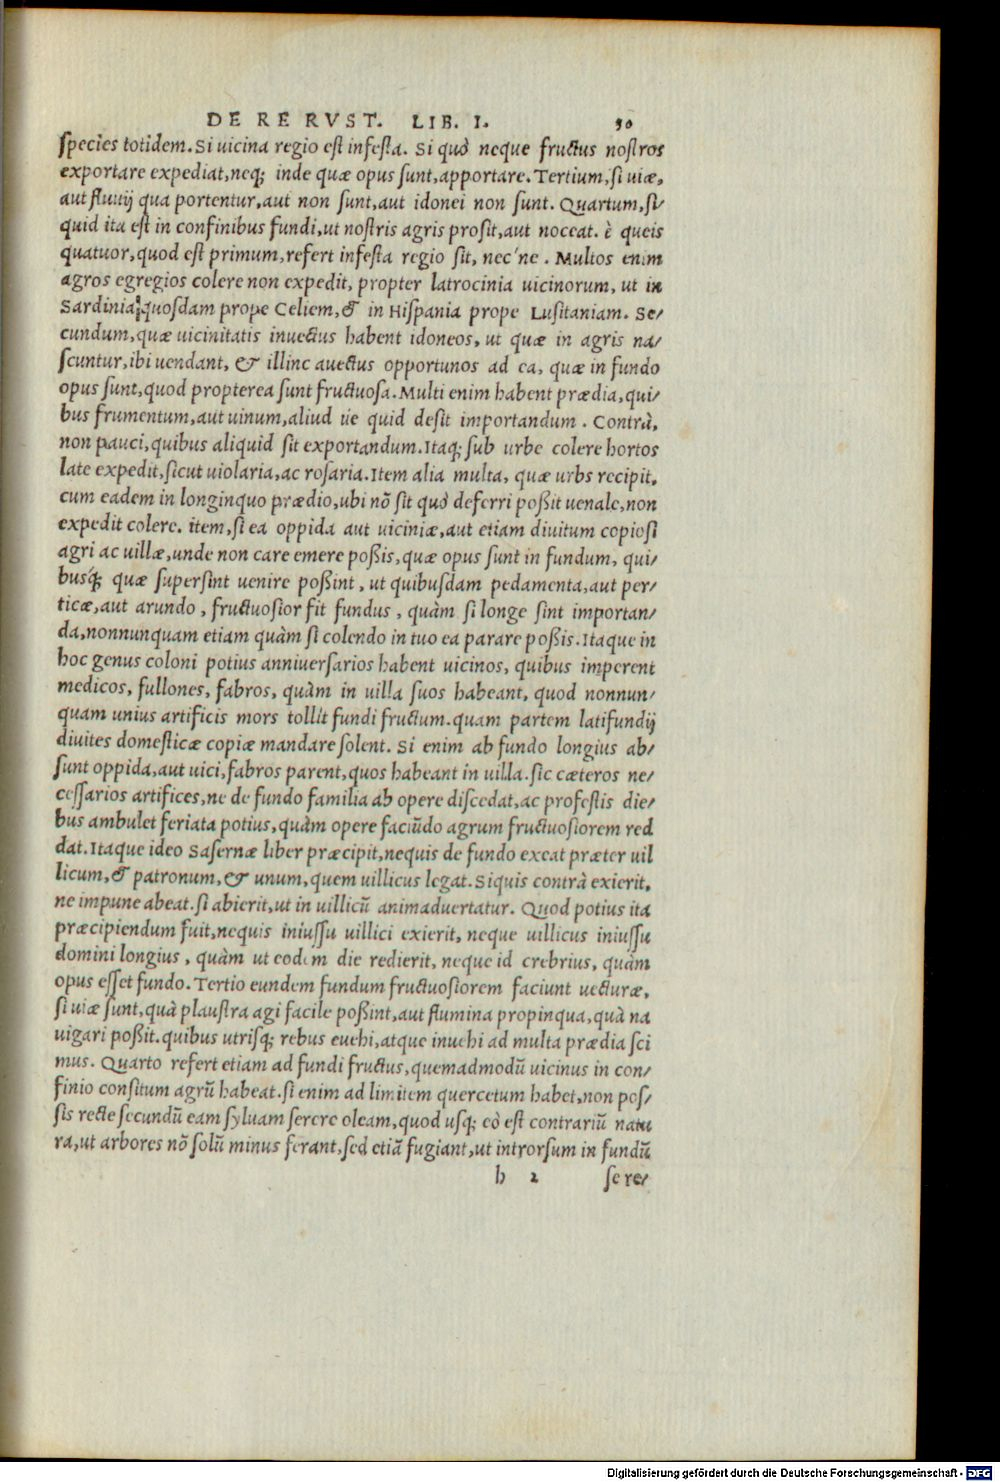 DE RE RVST. LIB. I. 50
species totidem. Si uicina regio est infesta. Si quò neque fructus nostros
exportare expediat, neq; inde quæ opus sunt, apportare. Tertium, si uiæ,
aut fluuij qua portentur, aut non sunt, aut idonei non sunt. Quartum, si/
quid ita est in confinibus fundi, ut nostris agris prosit, aut noceat. è queis
quatuor, quod est primum, refert infesta regio sit, nec'ne. Multos enim
agros egregios colere non expedit, propter latrocinia uicinorum, ut in
Sardinia quosdam prope Celiem, & in Hispania prope Lusitaniam. Se/
cundum, quæ uicinitatis inuectus habent idoneos, ut quæ in agris na/
scuntur, ibi uendant, & illinc auectus opportunos ad ea, quæ in fundo
opus sunt, quod propterea sunt fructuosa. Multi enim habent prædia, qui/
bus frumentum, aut uinum, aliud ue quid desit importandum. Contrà,
non pauci, quibus aliquid sit exportandum. Itaq; sub urbe colere hortos
late expedit, sicut uiolaria, ac rosaria. Item alia multa, quæ urbs recipit,
cum eadem in longinquo prædio, ubi nõ sit quò deferri poßit uenale, non
expedit colere. item, si ea oppida aut uiciniæ, aut etiam diuitum copiosi
agri ac uillæ, unde non care emere poßis, quæ opus sunt in fundum, qui/
busq́; quæ supersint uenire poßint, ut quibusdam pedamenta, aut per/
ticæ, aut arundo, fructuosior fit fundus, quàm si longe sint importan/
da, nonnunquam etiam quàm si colendo in tuo ea parare poßis. Itaque in
hoc genus coloni potius anniuersarios habent uicinos, quibus imperent
medicos, fullones, fabros, quàm in uilla suos habeant, quod nonnun/
quam unius artificis mors tollit fundi fructum. quam partem latifundij
diuites domesticæ copiæ mandare solent. Si enim ab fundo longius ab/
sunt oppida, aut uici, fabros parent, quos habeant in uilla. sic cæteros ne/
cessarios artifices, ne de fundo familia ab opere discedat, ac profestis die/
bus ambulet feriata potius, quàm opere faciũdo agrum fructuosiorem red
dat. Itaque ideo Sasernæ liber præcipit, nequis de fundo exeat præter uil
licum, & patronum, & unum, quem uillicus legat. Siquis contrà exierit,
ne impune abeat. si abierit, ut in uillicũ animaduertatur. Quod potius ita
præcipiendum fuit, nequis iniussu uillici exierit, neque uillicus iniussu
domini longius, quàm ut eodem die redierit, neque id crebrius, quàm
opus esset fundo. Tertio eundem fundum fructuosiorem faciunt uecturæ,
si uiæ sunt, quà plaustra agi facile poßint, aut flumina propinqua, quà na
uigari poßit. quibus utrisq; rebus euehi, atque inuehi ad multa prædia sci
mus. Quarto refert etiam ad fundi fructus, quemadmodũ uicinus in con/
finio consitum agrũ habeat. si enim ad limitem quercetum habet, non pos/
sis recte secundũ eam syluam serere oleam, quod usq; eò est contrariũ natu
ra, ut arbores nõ solũ minus ferant, sed etiã fugiant, ut introrsum in fundũ
b 2 se re/
Digitalisierung gefördert durch die Deutsche Forschungsgemeinschaft - DFG